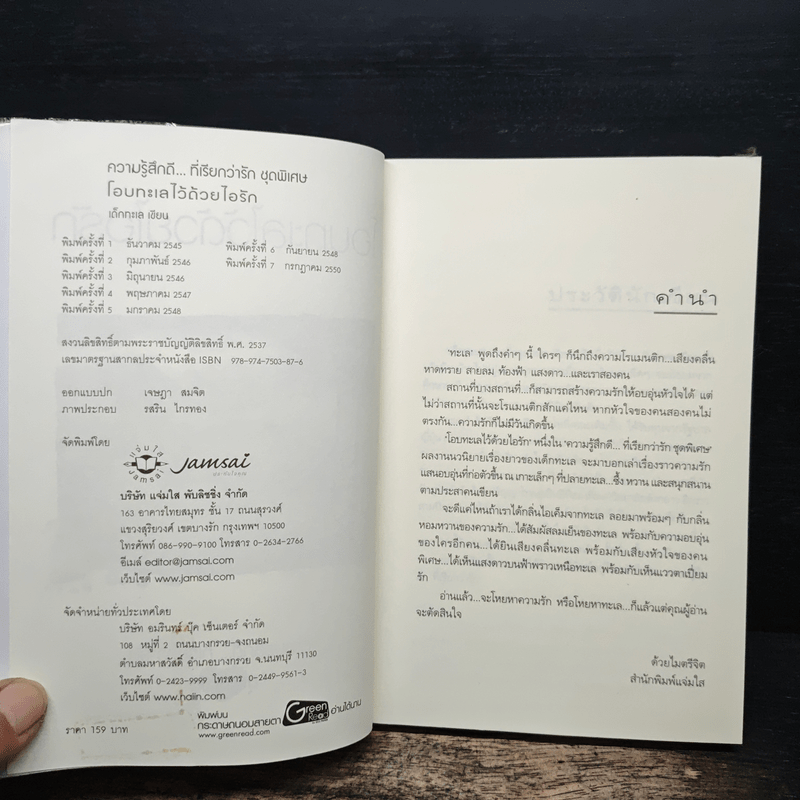 ความรู้สึกดี... ที่เรียกว่ารัก ชุดพิเศษ
โอบทะเลไว้ด้วยไอรัก
เด็กทะเล เขียน
พิมพ์ครั้งที่ 1 ธันวาคม 2545 พิมพ์ครั้งที่ 6 กันยายน 2548
พิมพ์ครั้งที่ 2 กุมภาพันธ์ 2546 พิมพ์ครั้งที่ 7 กรกฎาคม 2550
พิมพ์ครั้งที่ 3 มิถุนายน 2546
พิมพ์ครั้งที่ 4 พฤษภาคม 2547
พิมพ์ครั้งที่ 5 มกราคม 2548
สงวนลิขสิทธิ์ตามพระราชบัญญัติลิขสิทธิ์ พ.ศ. 2537
เลขมาตรฐานสากลประจำหนังสือ ISBN 978-974-7503-87-6
ออกแบบปก เจษฎา สมจิต
ภาพประกอบ รสริน ไกรทอง
จัดพิมพ์โดย
แจ่มใส
Jamsai
Jamsai
บริษัท แจ่มใส พับลิชชิ่ง จำกัด
163 อาคารไทยสมุทร ชั้น 17 ถนนสุรวงศ์
แขวงสุริยวงศ์ เขตบางรัก กรุงเทพฯ 10500
โทรศัพท์ 086-990-9100 โทรสาร 0-2634-2766
อีเมล์ editor@jamsai.com
เว็บไซต์ www.jamsai.com
จัดจำหน่ายทั่วประเทศโดย
บริษัท อมรินทร์ บุ๊ค เซ็นเตอร์ จำกัด
108 หมู่ที่ 2 ถนนบางกรวย-จงถนอม
ตำบลมหาสวัสดิ์ อำเภอบางกรวย จ.นนทบุรี 11130
โทรศัพท์ 0-2423-9999 โทรสาร 0-2449-9561-3
เว็บไซต์ www.naiin.com
ราคา 159 บาท
พิมพ์บน
กระดาษถนอมสายตา Green Read อ่านได้นาน
www.greenread.com
คำนำ
'ทะเล' พูดถึงคำๆ นี้ ใครๆ ก็นึกถึงความโรแมนติก...เสียงคลื่น
หาดทราย สายลม ท้องฟ้า แสงดาว...และเราสองคน
สถานที่บางสถานที่...ก็สามารถสร้างความรักให้อบอุ่นหัวใจได้ แต่
ไม่ว่าสถานที่นั้นจะโรแมนติกสักแค่ไหน หากหัวใจของคนสองคนไม่
ตรงกัน...ความรักก็ไม่มีวันเกิดขึ้น
'โอบทะเลไว้ด้วยไอรัก' หนึ่งใน 'ความรู้สึกดี... ที่เรียกว่ารัก ชุดพิเศษ'
ผลงานนวนิยายเรื่องยาวของเด็กทะเล จะมาบอกเล่าเรื่องราวความรัก
แสนอบอุ่นที่ก่อตัวขึ้น ณ เกาะเล็กๆ ที่ปลายทะเล...ซึ้ง หวาน และสนุกสนาน
ตามประสาคนเขียน
จะดีแค่ไหนถ้าเราได้กลิ่นไอเค็มจากทะเล ลอยมาพร้อมๆ กับกลิ่น
หอมหวานของความรัก...ได้สัมผัสลมเย็นของทะเล พร้อมกับความอบอุ่น
ของใครอีกคน...ได้ยินเสียงคลื่นทะเล พร้อมกับเสียงหัวใจของคน
พิเศษ...ได้เห็นแสงดาวบนฟ้าพราวเหนือทะเล พร้อมกับเห็นแววตาเปี่ยม
รัก
อ่านแล้ว...จะโหยหาความรัก หรือโหยหาทะเล...ก็แล้วแต่คุณผู้อ่าน
จะตัดสินใจ
ด้วยไมตรีจิต
สำนักพิมพ์แจ่มใส